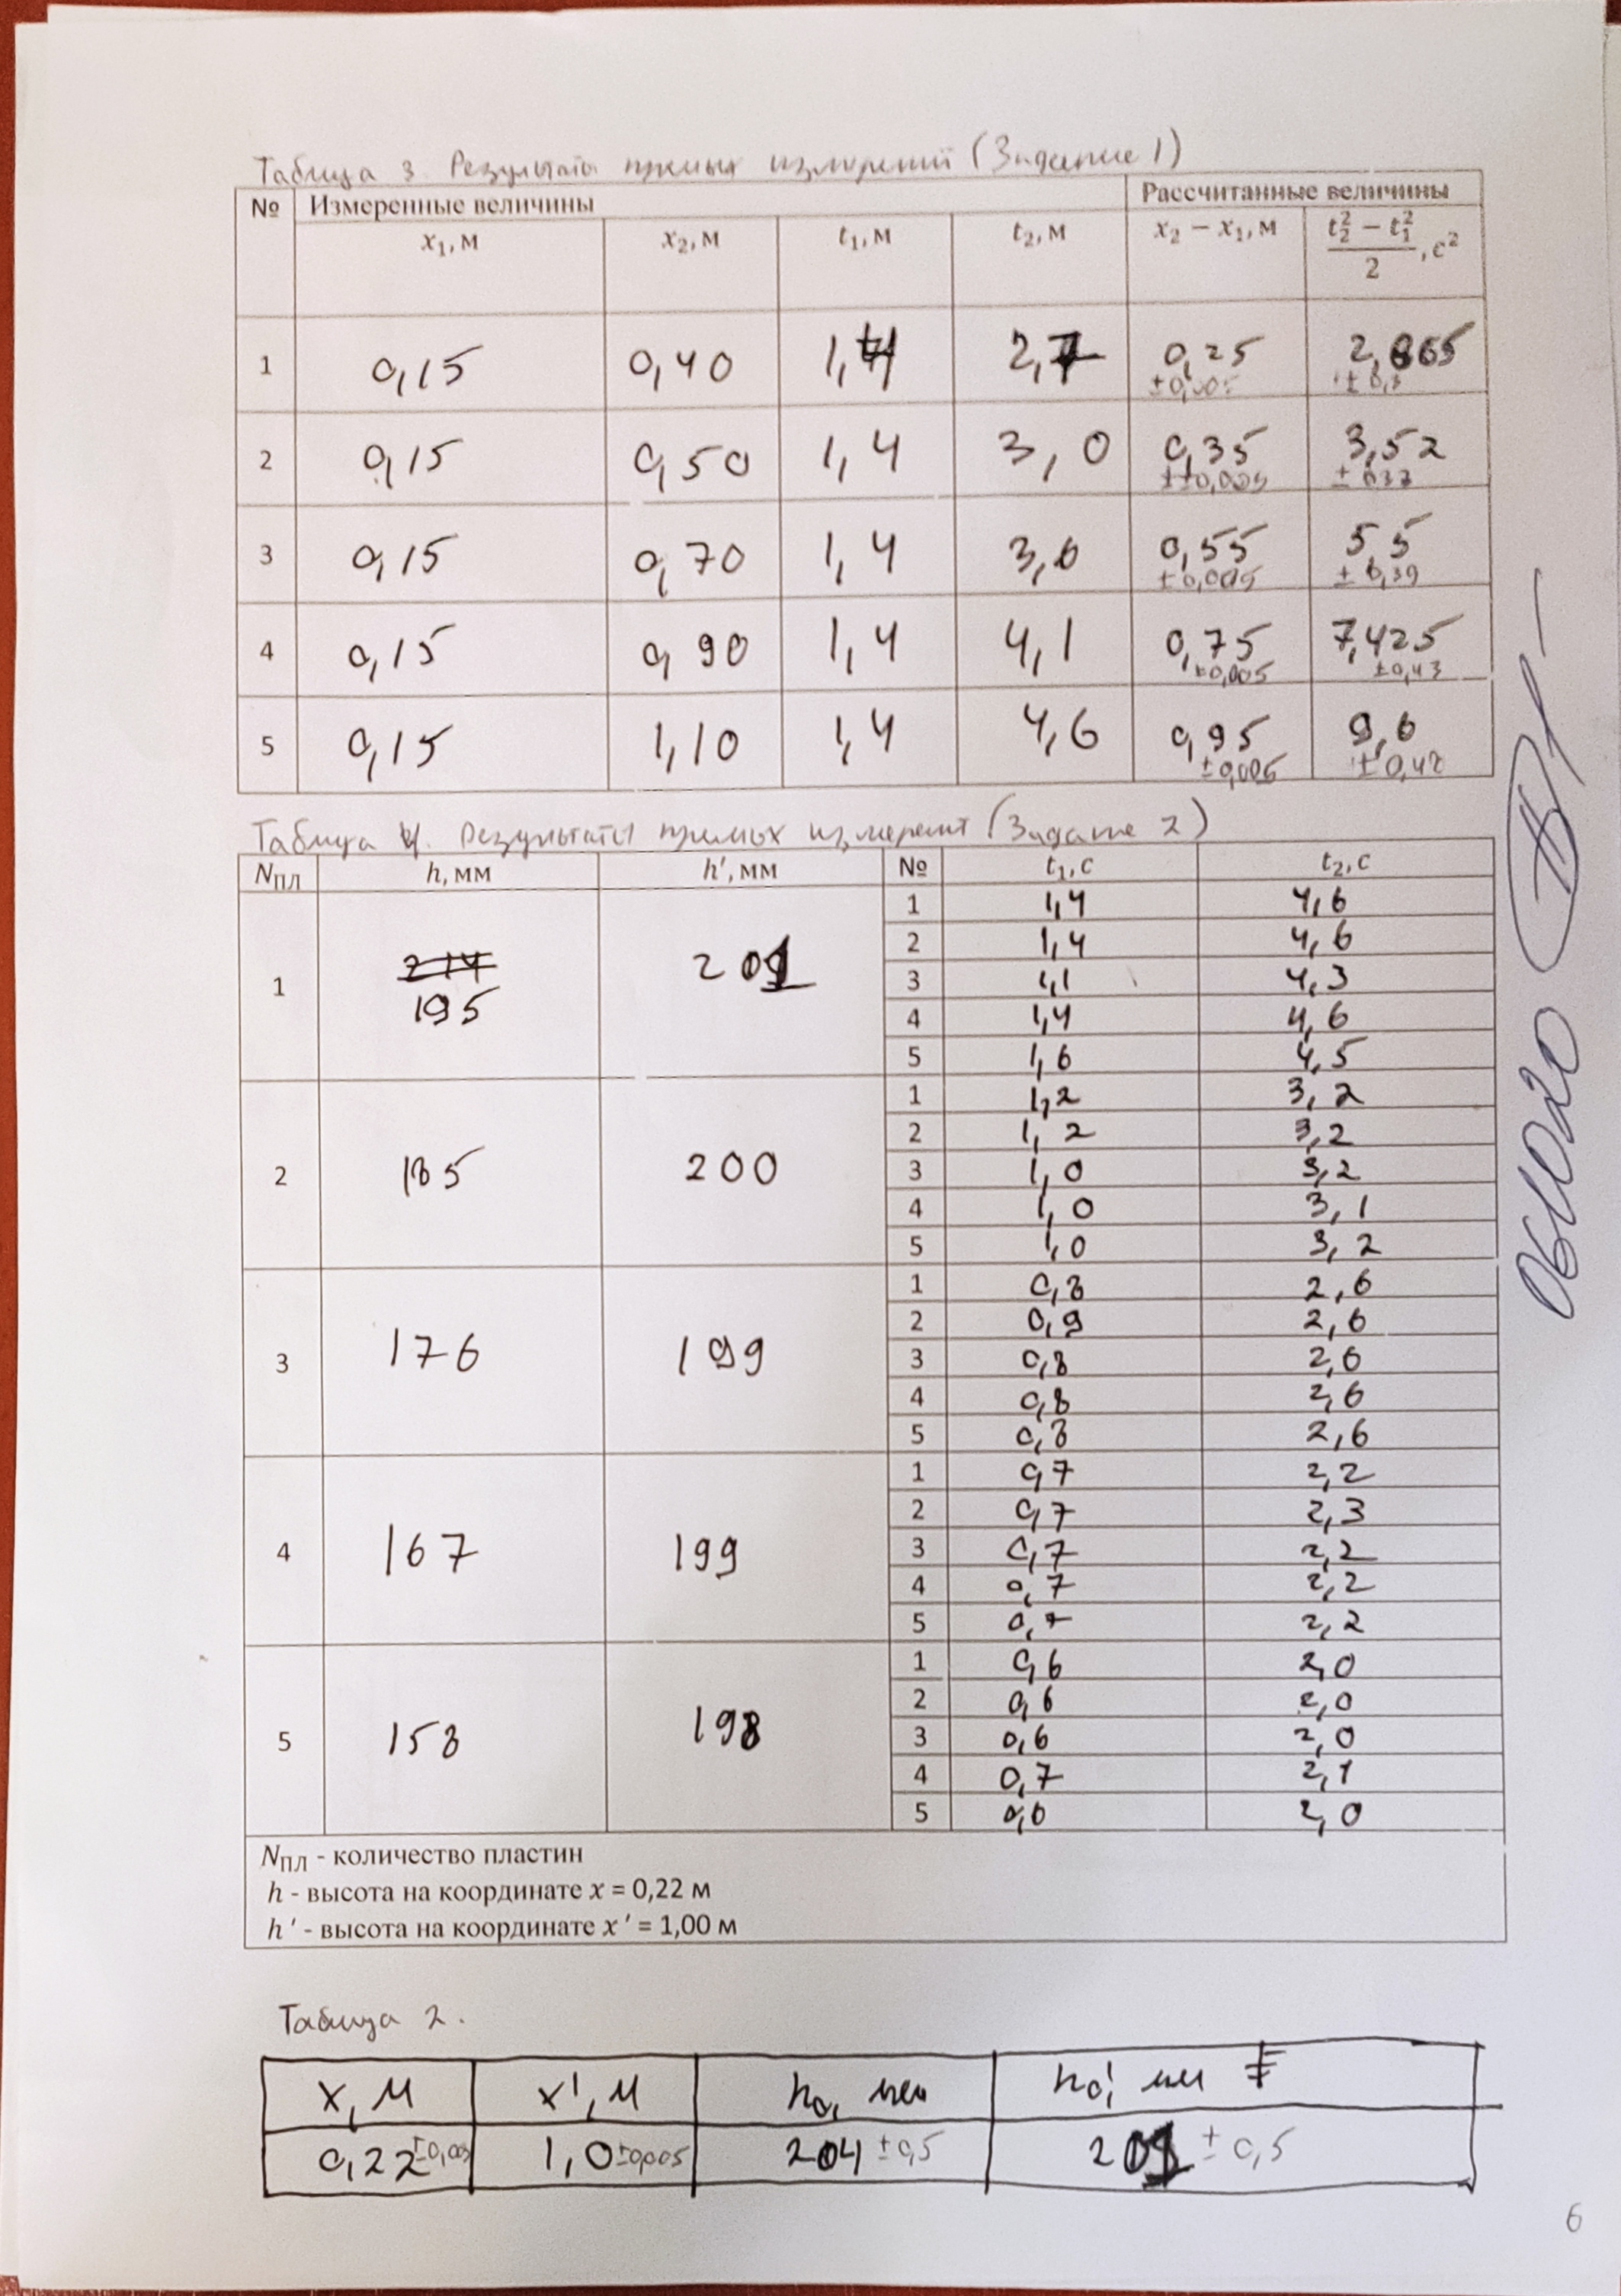 Таблица 3. Результаты прямых измерений (Задание 1)
№ Измеренные величины Рассчитанные величины
x₁, м x₂, м t₁, м t₂, м x₂ − x₁, м (t₂² − t₁²)/2, с²
1 0,15 0,40 1,4 2,7 0,25 ±0,005 2,665 ±0,3
2 0,15 0,50 1,4 3,0 0,35 ±±0,005 3,52 ±0,33
3 0,15 0,70 1,4 3,6 0,55 ±0,005 5,5 ±0,39
4 0,15 0,90 1,4 4,1 0,75 ±0,005 7,425 ±0,43
5 0,15 1,10 1,4 4,6 0,95 ±0,005 9,6 ±0,48
Таблица 4. Результаты прямых измерений (Задание 2)
Nпл h, мм h′, мм № t₁, с t₂, с
1 214 195 201 1 1,4 4,6
2 1,4 4,6
3 1,1 4,3
4 1,4 4,6
5 1,6 4,5
2 185 200 1 1,2 3,2
2 1,2 3,2
3 1,0 3,2
4 1,0 3,1
5 1,0 3,2
3 176 199 1 0,8 2,6
2 0,9 2,6
3 0,8 2,6
4 0,8 2,6
5 0,8 2,6
4 167 199 1 0,7 2,2
2 0,7 2,3
3 0,7 2,2
4 0,7 2,2
5 0,7 2,2
5 158 198 1 0,6 2,0
2 0,6 2,0
3 0,6 2,0
4 0,7 2,1
5 0,6 2,0
Nпл - количество пластин
h - высота на координате x = 0,22 м
h ′ - высота на координате x ′ = 1,00 м
Таблица 2.
x, м x', м h₀, мм h₀', мм
0,22 ±0,005 1,0 ±0,005 204 ±0,5 201 ±0,5
6